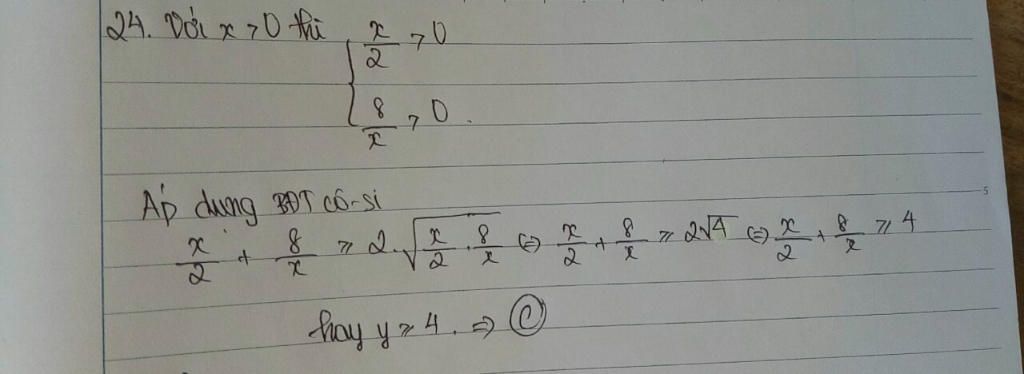 24. Với x > 0 thì { x/2 > 0
8/x > 0.
Áp dụng BĐT cô-si
x/2 + 8/x ≥ 2.√(x/2 . 8/x) ⇔ x/2 + 8/x ≥ 2√4 ⇔ x/2 + 8/x ≥ 4
hay y ≥ 4. ⇒ Ⓒ